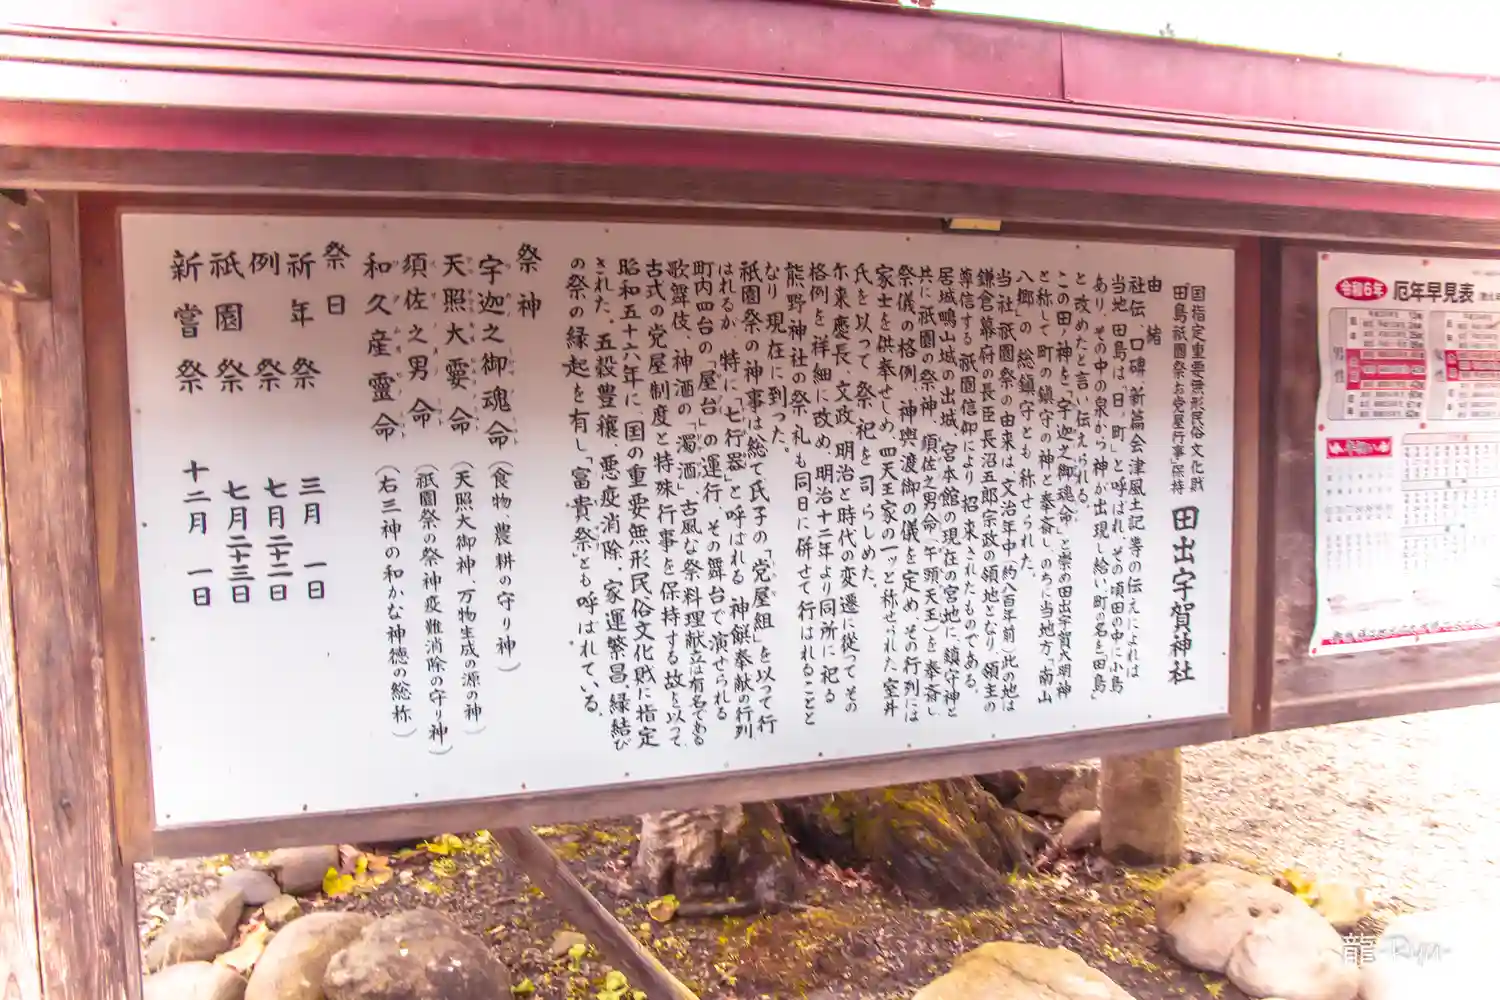 国指定重要無形民俗文化財
田島祇園祭お党屋行事保持
田出宇賀神社
由緒
社伝、口碑、新篇会津風土記等の伝えによれば
当地田島は「日。町」と呼ばれ、その頃田の中に小島
あり、その中の泉から神が出現し給い町の名を「田島」
と改めたと言い伝えられる。
この田。神を「宇迦之御魂命」と崇め田出宇賀大明神
と称して町の鎮守の神と奉斎し、のちに当地方「南山
八郷」の総鎮守とも称せられた。
当社祇園祭の由来は、文治年中(約八百年前)此の地は
鎌倉幕府の長臣長沼五郎宗政の領地となり、領主の
尊信する祇園信仰により招来されたものである。
居城鴫山城の出城、宮本館の現在の宮地に鎮守神と
共に祇園の祭神、須佐之男命(午頭天王)を奉斎し
祭儀の格例、神輿渡御の儀を定め、その行列には
家士を供奉せしめ、四天王家の一ッと称せられた室井
氏を以って祭祀を司らしめた。
尓来慶長、文政、明治と時代の変遷に従ってその
格例を祥細に改め、明治十二年より同所に祀る
熊野神社の祭礼も同日に併せて行はれることと
なり現在に到った。
祇園祭の神事は総て氏子の「党屋組」を以って行
はれるが、特に「七行器」と呼ばれる神饌奉献の行列
町内四台の「屋台」の運行、その舞台で演せられる
歌舞伎、神酒の「濁酒」古風な祭料理献立は有名である
古式の党屋制度と特殊行事を保持する故を以って
昭和五十六年に、国の重要無形民俗文化財に指定
された。五穀豊穣、悪疫消除、家運繁昌、縁結び
の祭の縁起を有し「富貴祭」とも呼ばれている。
祭神
宇迦之御魂命(食物、農耕の守り神)
天照大孁命(天照大御神、万物生成の源の神)
須佐之男命(祇園祭の祭神疫難消除の守り神)
和久産霊命(右三神の和かな神徳の総称)
祭日
祈年祭 三月一日
例祭 七月二十二日
祇園祭 七月二十三日
新嘗祭 十二月一日
令和6年 厄年早見表
男性
女性
龍-Ryu-